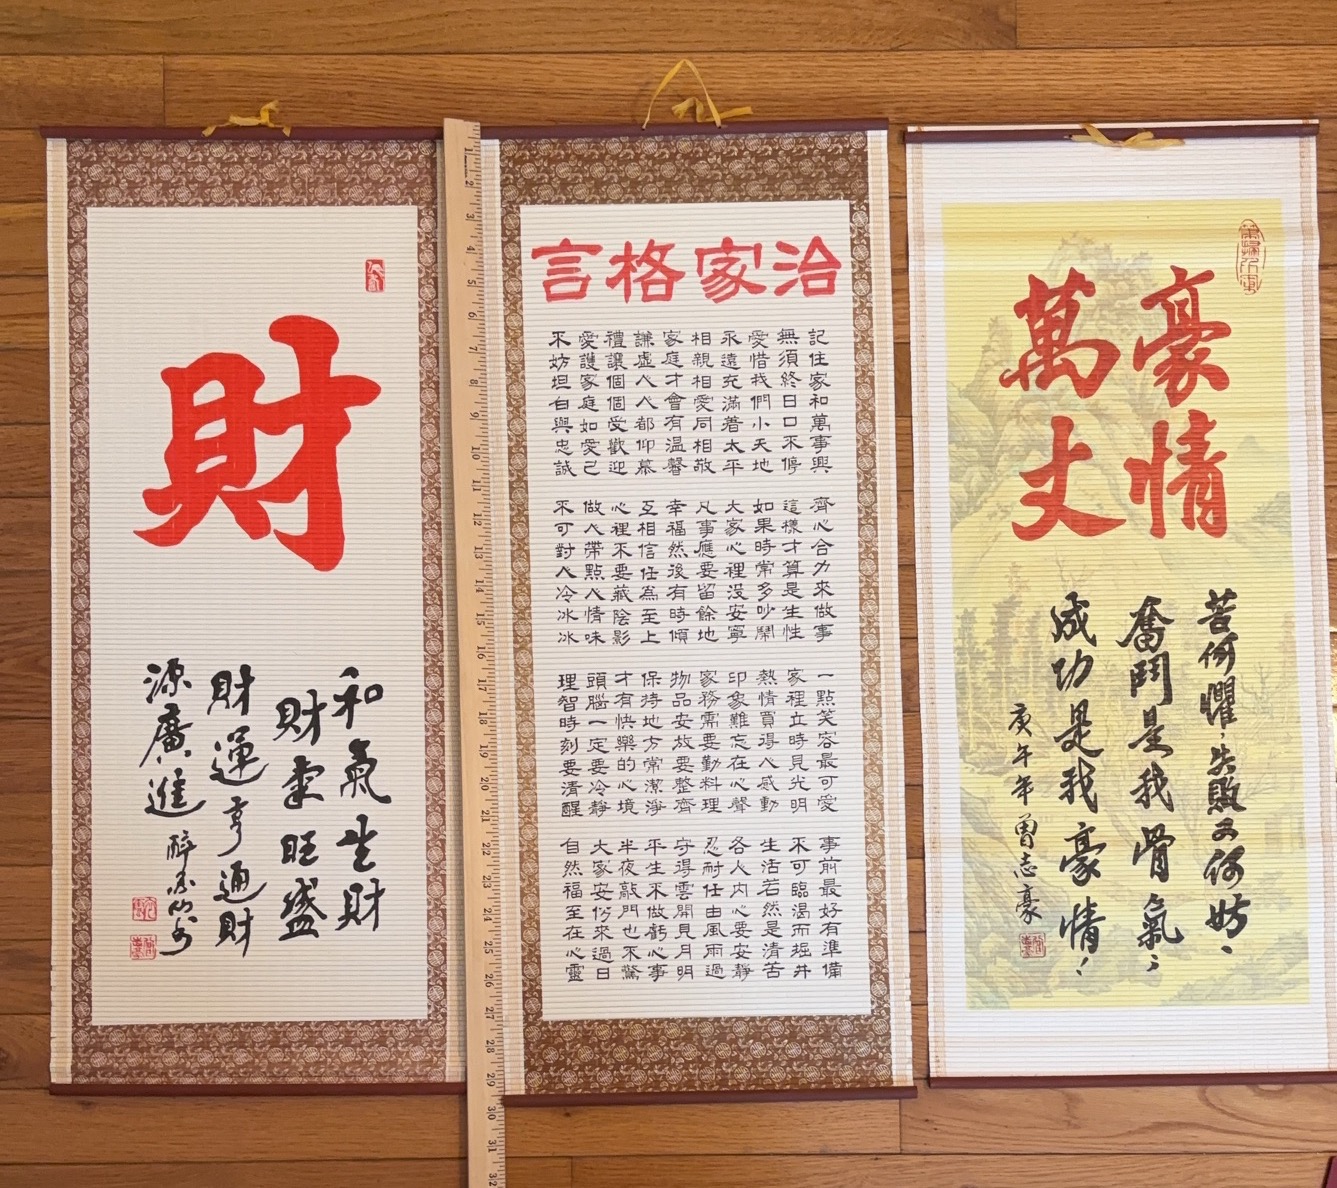 財
和氣生財
財氣旺盛
財運亨通財
源廣進
1
2
3
4
5
6
7
8
9
10
11
12
13
14
15
16
17
18
19
20
21
22
23
24
25
26
27
28
29
30
31
32
治家格言
記住家和萬事興
無須終日口不停
愛惜我們小天地
永遠充滿著太平
相親相愛同相敬
家庭才會有溫馨
謙虛人人都仰慕
禮讓個個受歡迎
愛護家庭如愛己
不妨坦白與忠誠
齊心合力來做事
這樣才算是生性
如果時常多吵鬧
大家心裡没安寧
凡事應要留餘地
幸福然後有時傾
互相信任為至上
心裡不要藏陰影
做人帶點人情味
不可對人冷冰冰
一點笑容最可愛
家裡立時見光明
熱情買得人感動
印象難忘在心聲
家務需要勤料理
物品安放要整齊
保持地方常潔淨
才有快樂的心境
頭腦一定要冷靜
理智時刻要清醒
事前最好有準備
不可臨渴而掘井
生活若然是清苦
各人內心要安靜
忍耐任由風雨過
守得雲開見月明
平生不做虧心事
半夜敲門也不驚
大家安份來過日
自然福至在心靈
豪情
萬丈
苦何懼，失敗又何妨、
奮鬥是我骨氣；
成功是我豪情！
庚午年曾志豪